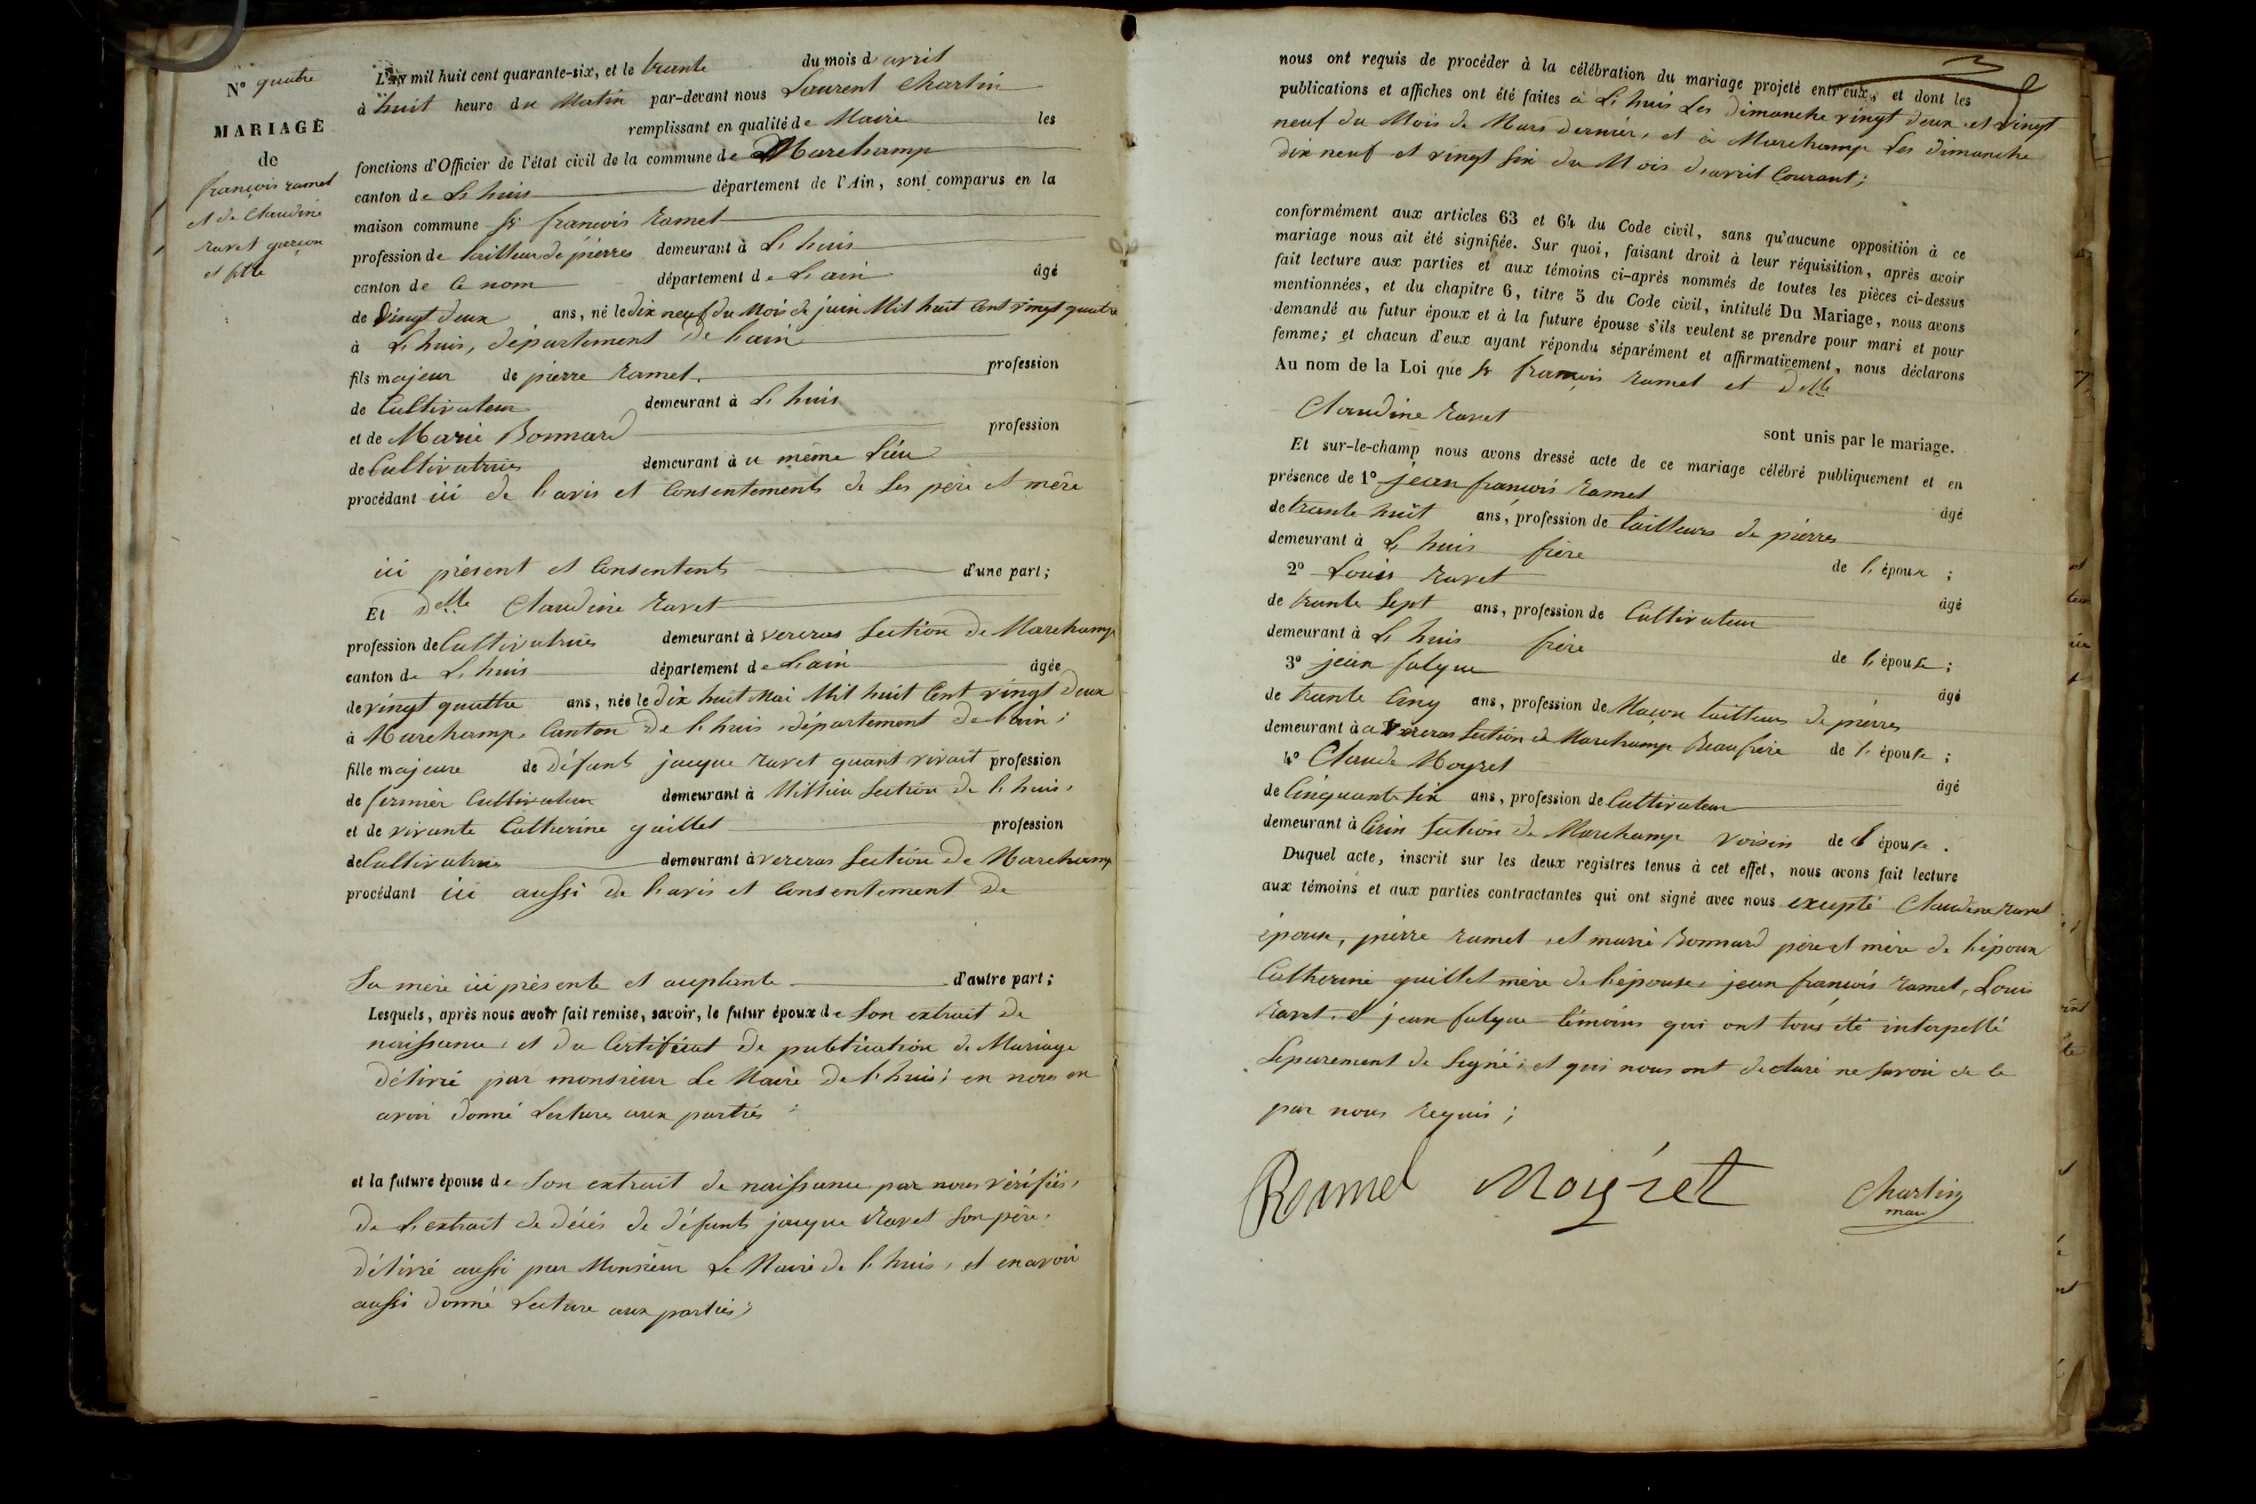 N° quatre
MARIAGE
de
françois ramel
et de Claudine
ravet garçon
et fille
L'an mil huit cent quarante-six, et le trante du mois d'avril
à huit heure du Matin par-devant nous Laurent Chartin
remplissant en qualité de Maire les
fonctions d'Officier de l'état civil de la commune de Marchamp
canton de Lhuis département de l'Ain, sont comparus en la
maison commune Sr françois ramel
profession de tailleur de pierres demeurant à Lhuis
canton de Ce nom département de L'ain âgé
de Vingt deux ans, né le dix neuf du Mois de juin Mil huit Cent vingt quatre
à Lhuis, département de L'ain
fils majeur de pierre ramel profession
de Cultivateur demeurant à Lhuis
et de Marie Bonnard profession
de Cultivatrice demeurant à u même Lieu
procédant ici de l'avis et Consentements de Ses père et mère
ici présent et Consentents d'une part;
Et delle Claudine ravet
profession de Cultivatrice demeurant à vereras Section de Marchamp
canton de Lhuis département de L'ain âgée
de vingt quattre ans, née le dix huit Mai Mil huit Cent vingt deux
à Marchamp, Canton de Lhuis département de L'ain;
fille majeure de défunt jacque ravet quant vivait profession
de fermier Cultivateur demeurant à Millieu Section de Lhuis,
et de vivante Catherine guillet profession
de Cultivatrice demeurant à vereras Section de Marchamp
procédant ici aussi de l'avis et Consentement de
Sa mère ici présente et acceptante d'autre part;
Lesquels, après nous avoir fait remise, savoir, le futur époux de Son extrait de
naissance, et du Certificat de publication de Mariage
délivré par monsieur Le Maire de Lhuis; en nous en
avoir donné Lecture aux parties
et la future épouse de Son extrait de naissance par nous vérifiés,
de L'extrait de décés de défunts jacque Ravet Son père,
délivré aussi par Monsieur Le Maire de Lhuis, et en avoir
aussi donné Lecture aux parties;
3
nous ont requis de procéder à la célébration du mariage projeté entr'eux, et dont les
publications et affiches ont été faites à Lhuis Les dimanche vingt deux et vingt
neuf du Mois de Mars dernier, et à Marchamp Les dimanche
dix neuf et vingt Six du Mois d'avril Courant;
conformément aux articles 63 et 64 du Code civil, sans qu'aucune opposition à ce
mariage nous ait été signifiée. Sur quoi, faisant droit à leur réquisition, après avoir
fait lecture aux parties et aux témoins ci-après nommés de toutes les pièces ci-dessus
mentionnées, et du chapitre 6, titre 5 du Code civil, intitulé Du Mariage, nous avons
demandé au futur époux et à la future épouse s'ils veulent se prendre pour mari et pour
femme; et chacun d'eux ayant répondu séparément et affirmativement, nous déclarons
Au nom de la Loi que Sr françois ramel et delle
Claudine ravet sont unis par le mariage.
Et sur-le-champ nous avons dressé acte de ce mariage célébré publiquement et en
présence de 1° jean françois ramel âgé
de trante huit ans, profession de tailleurs de pierres
demeurant à Lhuis frère de l'époux;
2° Louis ravet âgé
de trante Sept ans, profession de Cultivateur
demeurant à Lhuis frère de l'épouse;
3° jean falque âgé
de trante Cinq ans, profession de Maçon tailleurs de pierres
demeurant à a Vereras Section de Marchamp Beaufrère de l'épouse;
4° Claude Moyret âgé
de Cinquante Six ans, profession de Cultivateur
demeurant à Cirin Section de Marchamp voisin de l'épouse.
Duquel acte, inscrit sur les deux registres tenus à cet effet, nous avons fait lecture
aux témoins et aux parties contractantes qui ont signé avec nous excepté Claudine ravet
épouse, pierre ramel, et marie Bonnard père et mère de l'époux
Catherine guillet mère de l'épouse, jean françois ramel, Louis
Ravet. et jean falque témoins qui ont tous été interpellé
Séparement de Signé; et qui nous ont déclaré ne Savoir de ce
par nous requis;
Ramel Moigret Chartin
maire